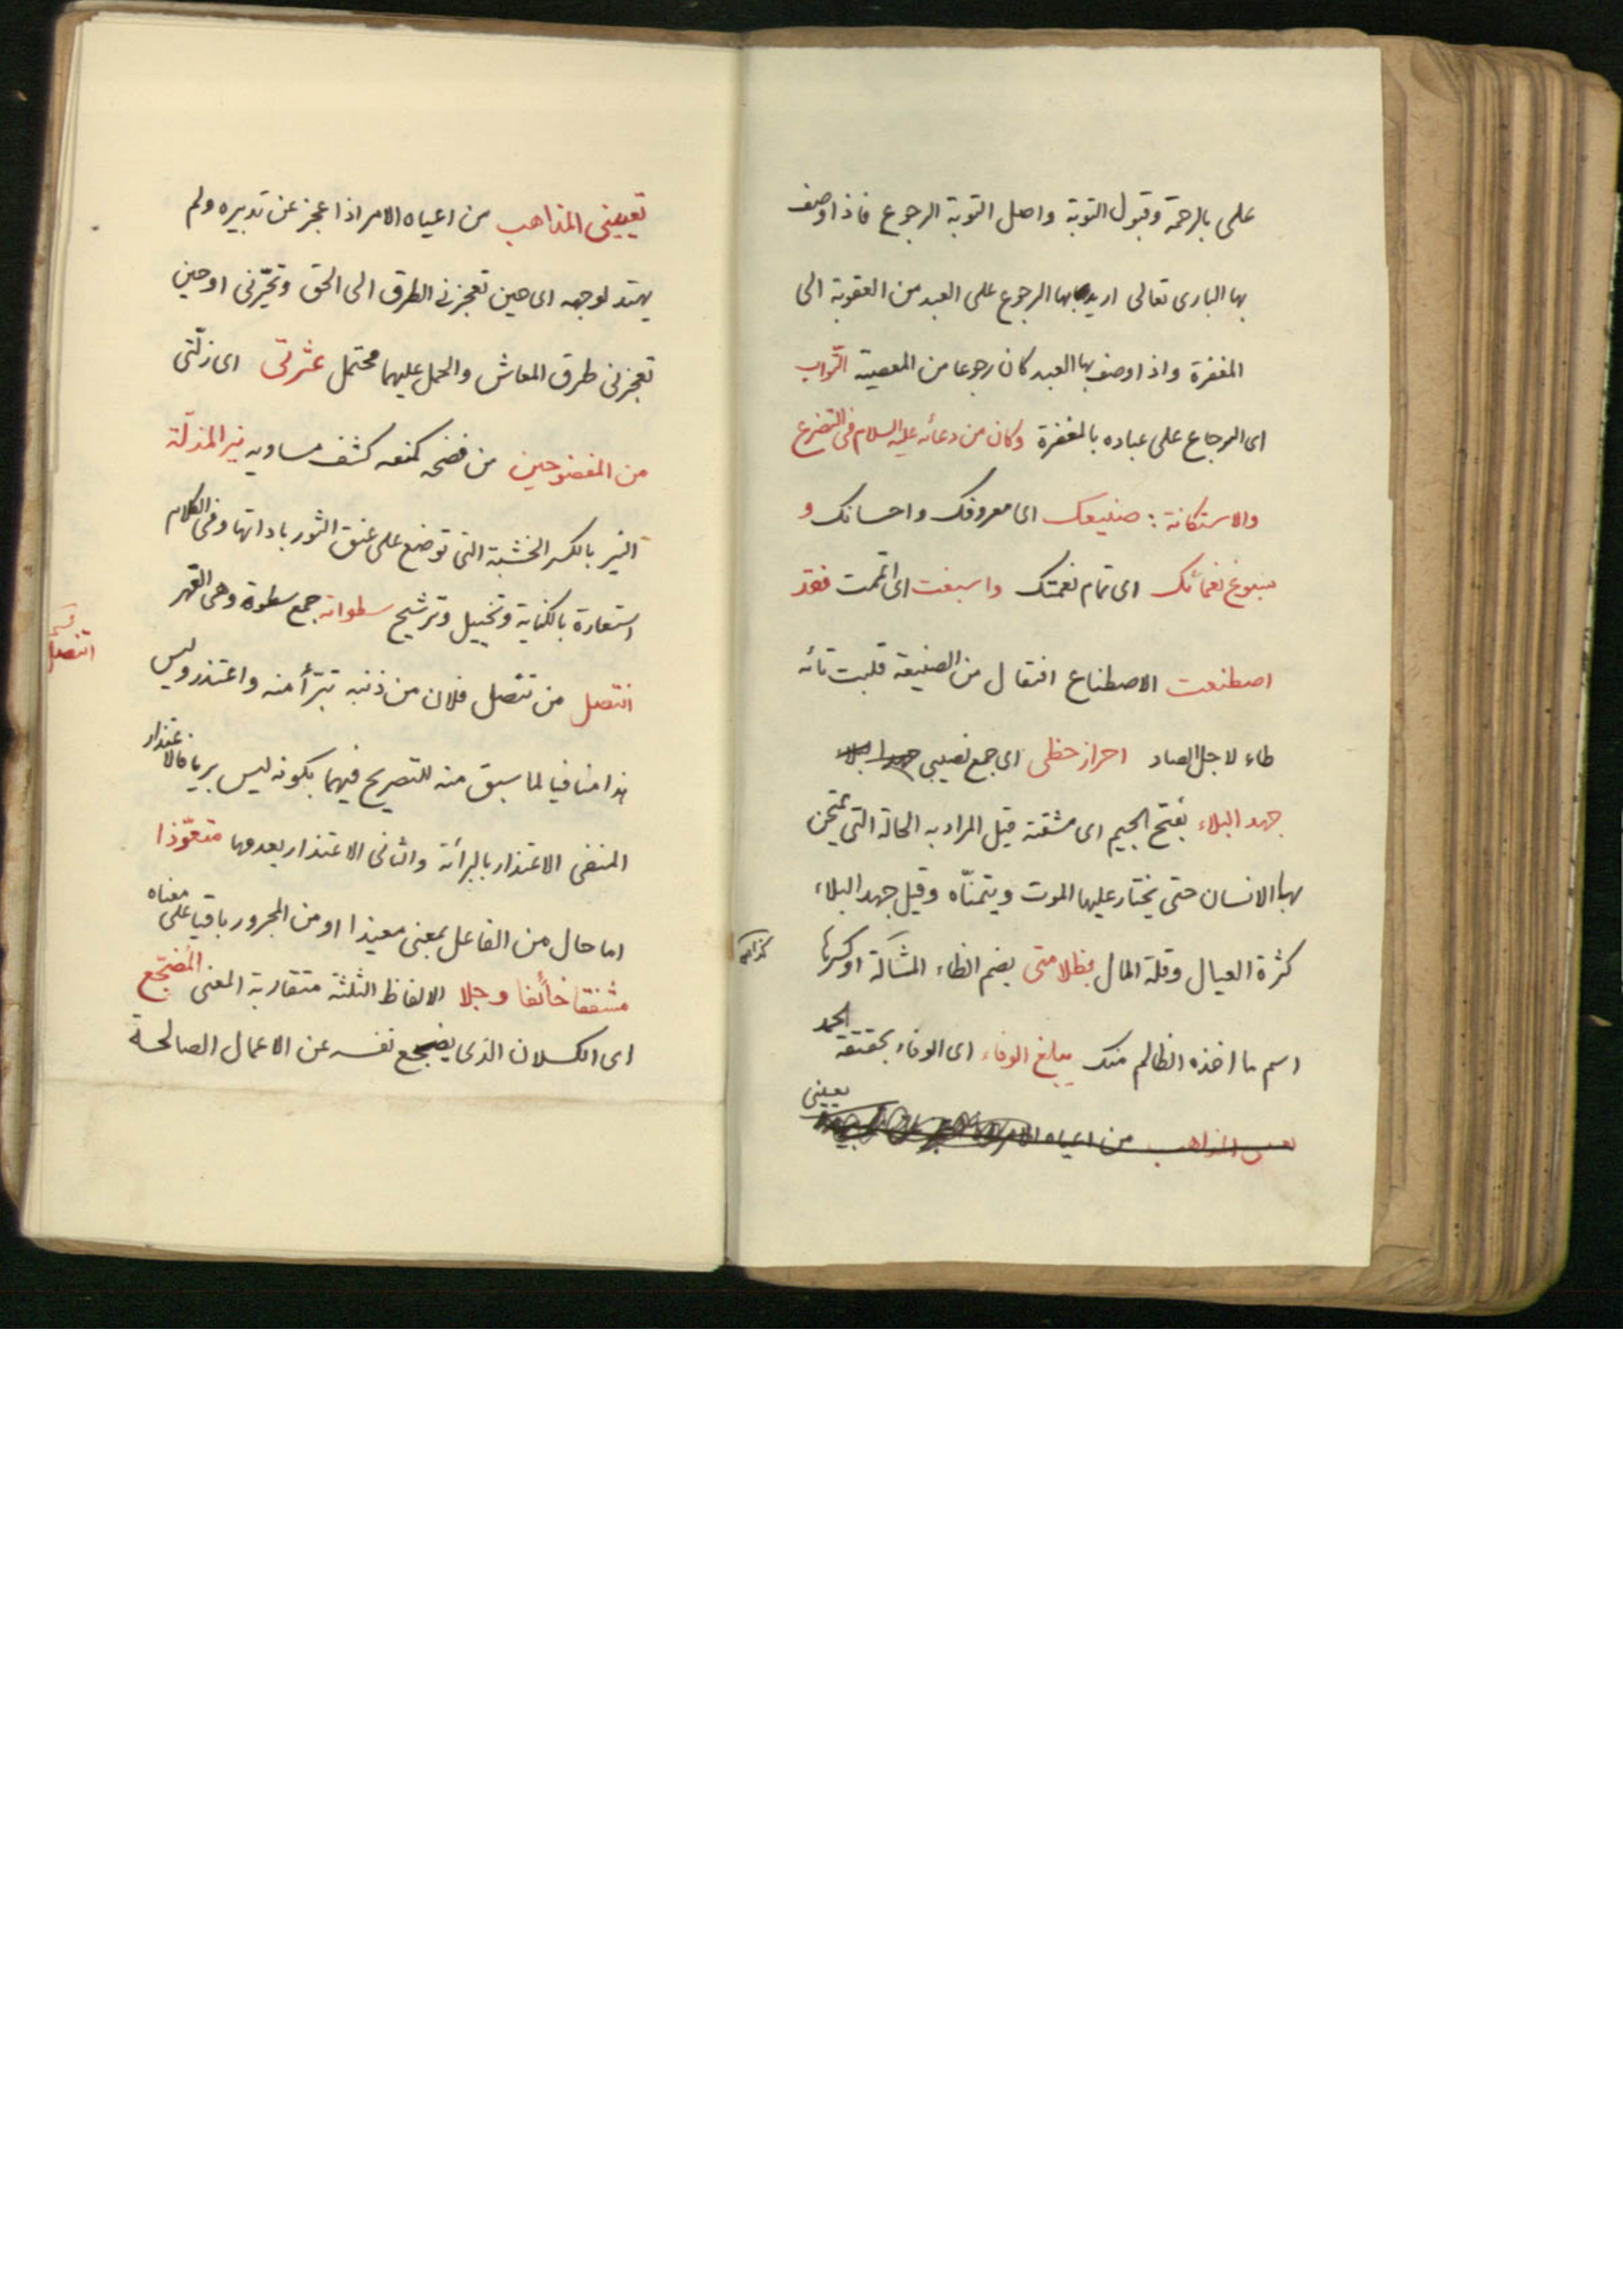 على بالرحمة وقبول التوبة واصل التوبة الرجوع فاذا وصف
بها البارى تعالى اريد بها الرجوع على العبد من العقوبة الى
المغفرة واذا وصف بها العبد كان رجوعا من المعصية التّواب
اى الرجاع على عباده بالمغفرة وكان من دعائه عليه السلام فى التضرع
والاستكانة : صنيعك اى معروفك واحسانك و
سبوغ نعمائك اى تمام نعمتك واسبغت اى اتممت فقد
اصطنعت الاصطناع افتعال من الصنيعة قلبت تائه
طاء لاجل الصاد احراز حظى اى جمع نصيبى
جهد البلاء بفتح الجيم اى مشقته قيل المراد به الحالة التي يمتحن
بها الانسان حتى يختار عليها الموت ويتمنّاه وقيل جهد البلاء
كثرة العيال وقلة المال بظلامتى بضم الظاء المشالة او كسرها
اسم ما اخذه الظالم منك يبلغ الوفاء اى الوفاء بحقيقة الحمد
تعيينى
من اعياه الامر
تعيينى المذاهب من اعياه الامر اذا عجز عن تدبيره ولم
يهتد لوجهه اى حين تعجزنى الطرق الى الحق وتحيّرنى او حين
تعجزنى طرق المعاش والحمل عليهما محتمل عثرتى اى زلّتى
من المفضوحين من فضحه كمنعه كشف مساويه نير المذلّة
النير بالكسر الخشبة التى توضع على عنق الثور باداتها وفى الكلام
استعارة بالكناية وتخييل وترشيح سطواته جمع سطوة وهى القهر
انتصل من تنصل فلان من ذنبه تبرأ منه واعتذر وليس
انتصل
هذا منافيا لما سبق منه للتصريح فيهما بكونه ليس بريا فالاعتذار
المنفى الاعتذار بالبرائة والثانى الاعتذار بعدمها متعوّذا
اما حال من الفاعل بمعنى معيذا او من المجرور باقيا على معناه
مشفقا خائفا وجلا الالفاظ الثلثة متقاربة المعنى المضجّع
اى الكسلان الذى يضجع نفسه عن الاعمال الصالحة